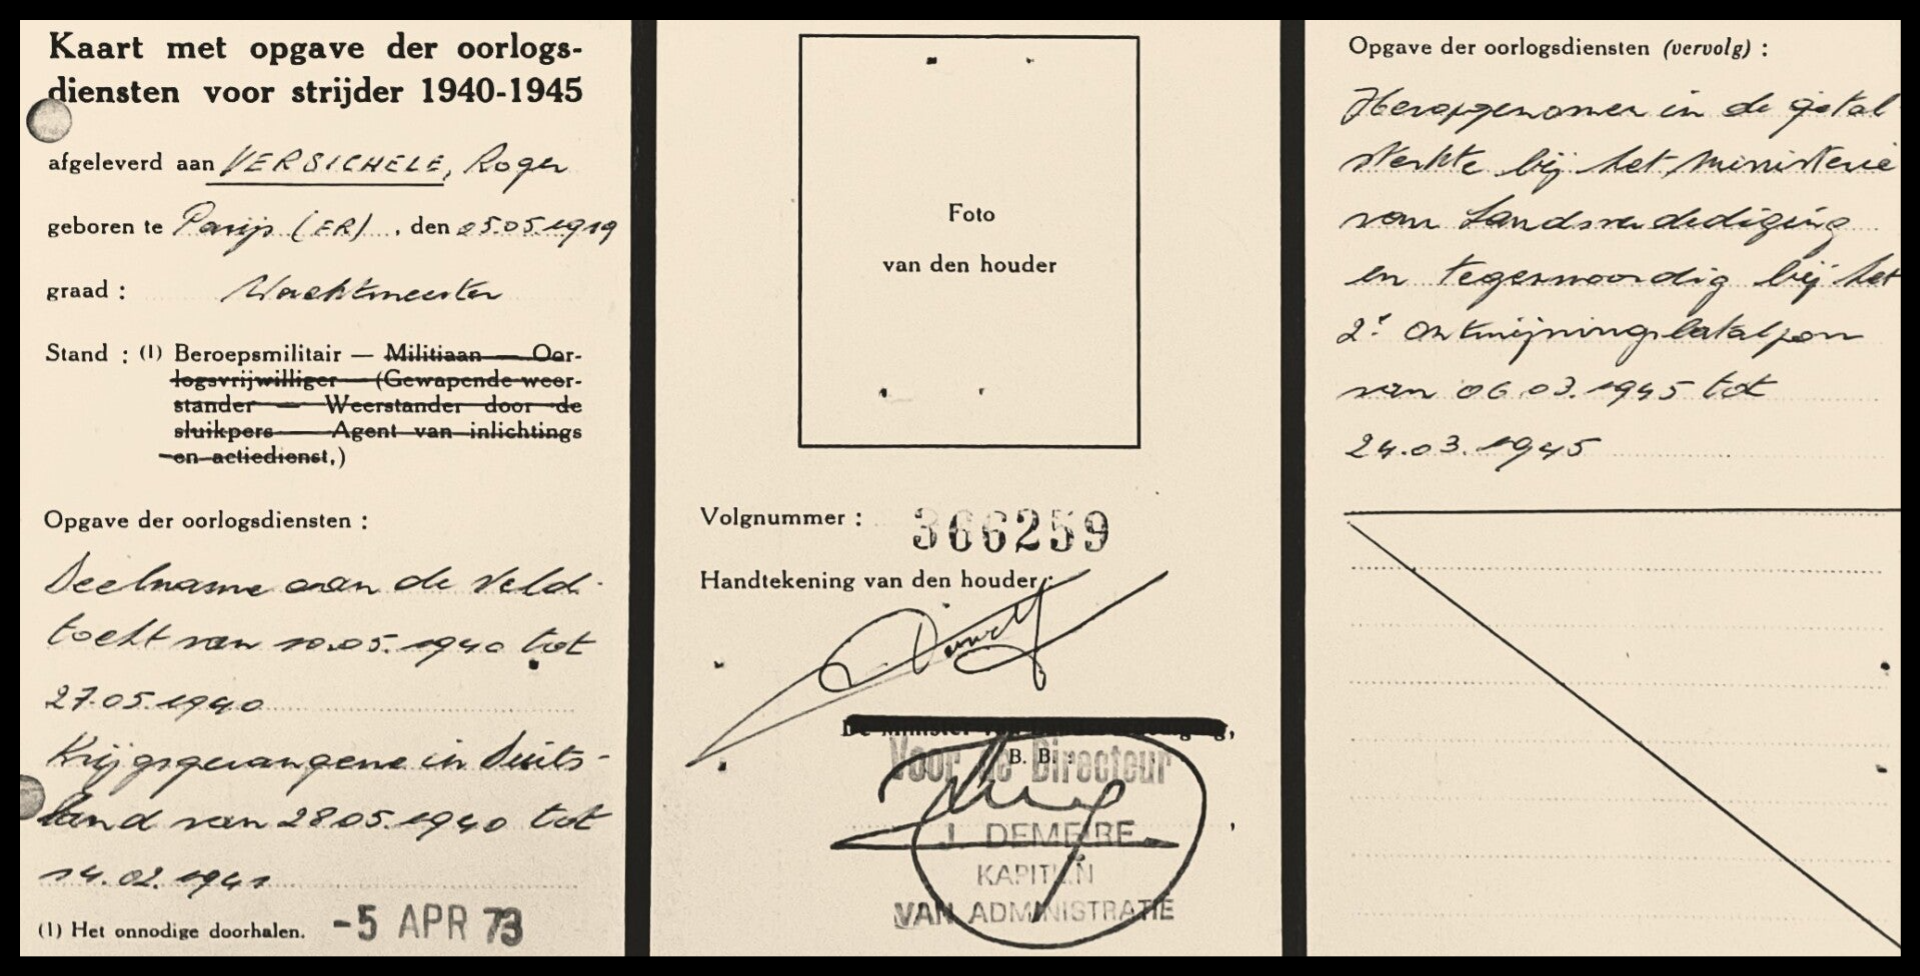 Kaart met opgave der oorlogs-
diensten voor strijder 1940-1945
afgeleverd aan VERSICHELE, Roger
geboren te Parijs (FR), den 05.05.1919
graad : Wachtmeester
Stand : (1) Beroepsmilitair — Militiaan — Oor-
logsvrijwilliger — (Gewapende weer-
stander — Weerstander door de
sluikpers — Agent van inlichtings
en actiedienst,)
Opgave der oorlogsdiensten :
Deelname aan de veld-
tocht van 10.05.1940 tot
27.05.1940
Krijgsgevangene in Duits-
land van 28.05.1940 tot
14.02.1941
(1) Het onnodige doorhalen. -5 APR 73
Foto
van den houder
Volgnummer : 366259
Handtekening van den houder :
B. B. :
Voor de Directeur
J. DEMEIRE
KAPITEIN
VAN ADMINISTRATIE
Opgave der oorlogsdiensten (vervolg) :
Heropgenomen in de getal
sterkte bij het Ministerie
van Landsverdediging
en tegenwoordig bij het
2e Ontmijningsbataljon
van 06.03.1945 tot
24.03.1945